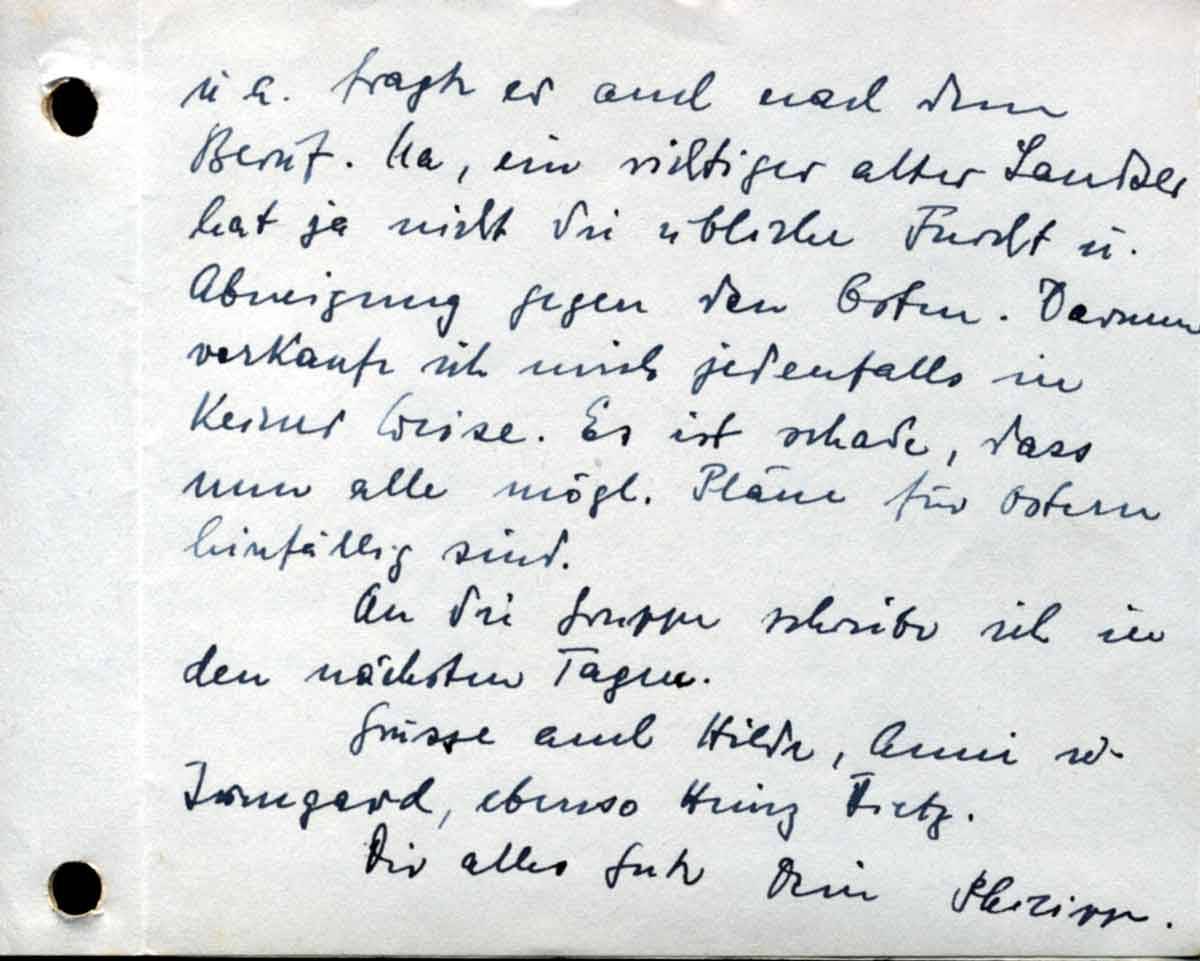 u a. fragte er auch nach dem
Beruf. Na, ein richtiger alter Landser
hat ja nicht die übliche Furcht u.
Abneigung gegen den Osten. Darum
verkaufe ich mich jedenfalls in
keiner Weise. Es ist schade, dass
nun alle mögl. Pläne für Ostern
hinfällig sind.
An die Gruppe schreibe ich in
den nächsten Tagen.
Grüsse auch Hilde, Anni
Irmgard, ebenso Heinz Dietz.
Dir alles Gute Dein Philipp.